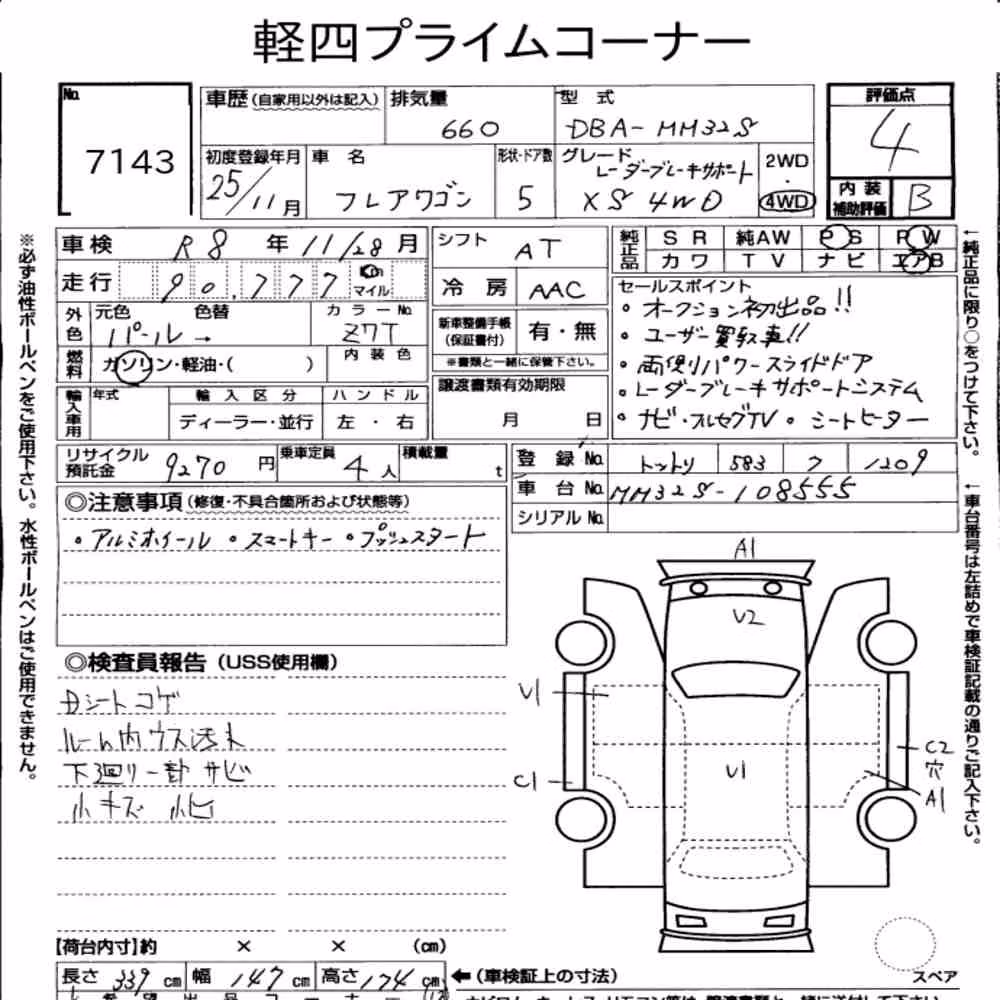 軽四プライムコーナー
No. 7143
車歴 (自家用以外は記入)
排気量 660
型式 DBA-MM32S
評価点 4
初度登録年月 25/11月
車名 フレアワゴン
形状・ドア数 5
グレード レーダーブレーキサポート XS 4WD
2WD・4WD
内装補助評価 B
車検 R8年11/28月
シフト AT
純正品 SR 純AW PS PW
カワ TV ナビ エアB
走行 90,777 Km マイル
冷房 AAC
外色 元色 パール→ 色替
カラーNo. Z7T
新車整備手帳(保証書付) 有・無
※書類と一緒に保管下さい。
燃料 ガソリン・軽油・( )
内装色
セールスポイント
・オークション初出品!!
・ユーザー買取車!!
・両側リパワースライドドア
・レーダーブレーキサポートシステム
・ナビ・フルセグTV ・シートヒーター
輸入車用 年式 輸入区分 ディーラー・並行
ハンドル 左・右
譲渡書類有効期限 月 日
リサイクル預託金 9270円
乗車定員 4人
積載量 t
登録No. トットリ 583 フ 1209
車台No. MM32S-108555
シリアルNo.
◎注意事項(修復・不具合箇所および状態等)
・アルミホイール ・スマートキー ・プッシュスタート
◎検査員報告 (USS使用欄)
Dシートコゲ
ルーム内ウス汚れ
下廻り一部サビ
小キズ 小凹
A1
V2
U1
U1
C1
C2
穴
A1
スペア
【荷台内寸】約 × × (cm)
長さ 339cm 幅 147cm 高さ 174cm
←(車検証上の寸法)
※必ず油性ボールペンをご使用下さい。水性ボールペンはご使用できません。
←純正品に限り○をつけて下さい。
←車台番号は左詰めで車検証記載の通りご記入下さい。